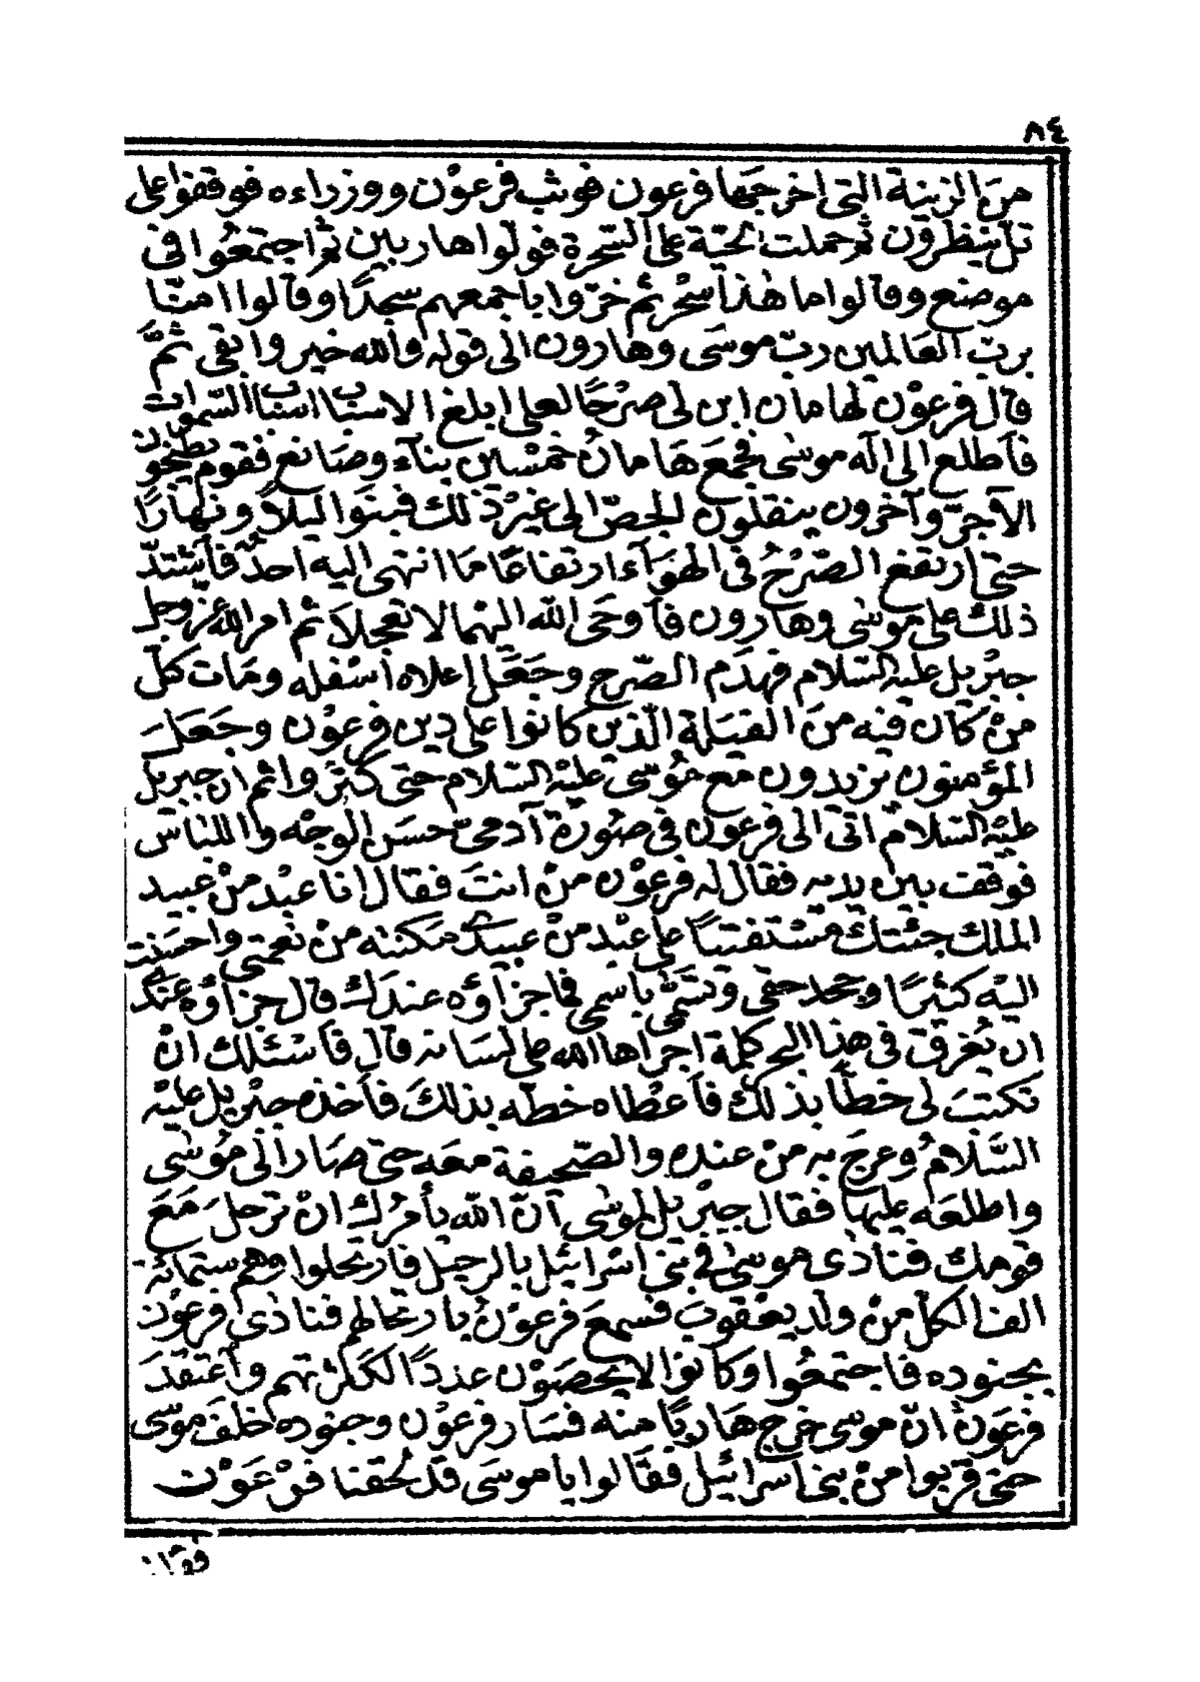 ٨٤
من الزينة التى اخرجها فرعون فوثب فرعون ووزراءه فوقفوا على
تل ينظرون ثم حملت الحية على السحرة فولوا هاربين ثم اجتمعوا فى
موضع وقالوا ما هذا سحر ثم خرّوا باجمعهم سجدًا وقالوا امنّا
بربّ العالمين ربّ موسى وهارون الى قوله والله خير وابقى ثمّ
قال فرعون لهامان ابن لى صرحًا لعلى ابلغ الاسباب اسباب السموات
فأطلع الى اله موسى فجمع هامان خمسين بنّاء وصانع فقوم يطبخون
الآجرّ وآخرون ينقلون الجصّ الى غير ذلك فبنوا ليلاً ونهارًا
حتى ارتفع الصّرح فى الهواء ارتفاعًا ما انتهى اليه احد فأشتدّ
ذلك على موسى وهارون فأوحى الله اليهما لا تعجلا ثم امر الله عزّ وجلّ
جبريل عليه السّلام فهدم الصّرح وجعل اعلاه اسفله ومات كلّ
من كان فيه من القبلة الّذين كانوا على دين فرعون وجعل
المؤمنون يزيدون مع موسى عليه السّلام حتى كثروا ثم ان جبريل
عليه السّلام اتى الى فرعون فى صورة آدمىّ حسن الوجه واللباس
فوقف بين يديه فقال له فرعون من انت فقال انا عبد من عبيد
الملك جئتك مستفتيًا على عبد من عبيدى مكنته من نعمتى واحسنت
اليه كثيرًا وجحد حقى وتسمّى باسمى فما جزاؤه عندك قال جزاؤه عندى
ان يغرق فى هذا البحر كلمة اجراها الله على لسانه قال فأسئلك ان
تكتب لى خطّا بذلك فأعطاه خطّه بذلك فأخذه جبريل عليه
السّلام وعرج به من عنده والصّحيفة معه حتى صار الى موسى
واطلعه عليها فقال جبريل لموسى انّ الله يأمرك ان ترحل مع
قومك فنادى موسى فى بنى اسرائيل بالرحيل فارتحلوا وهم ستمائة
الف الكل من ولد يعقوب فسمع فرعون بارتحالهم فنادى فرعون
بجنوده فاجتمعوا وكانوا لا يحصون عددًا لكثرتهم واعتقد
فرعون انّ موسى خرج هاربًا منه فسار فرعون وجنوده خلف موسى
حتى قربوا من بنى اسرائيل فقالوا يا موسى قد لحقنا فرعون